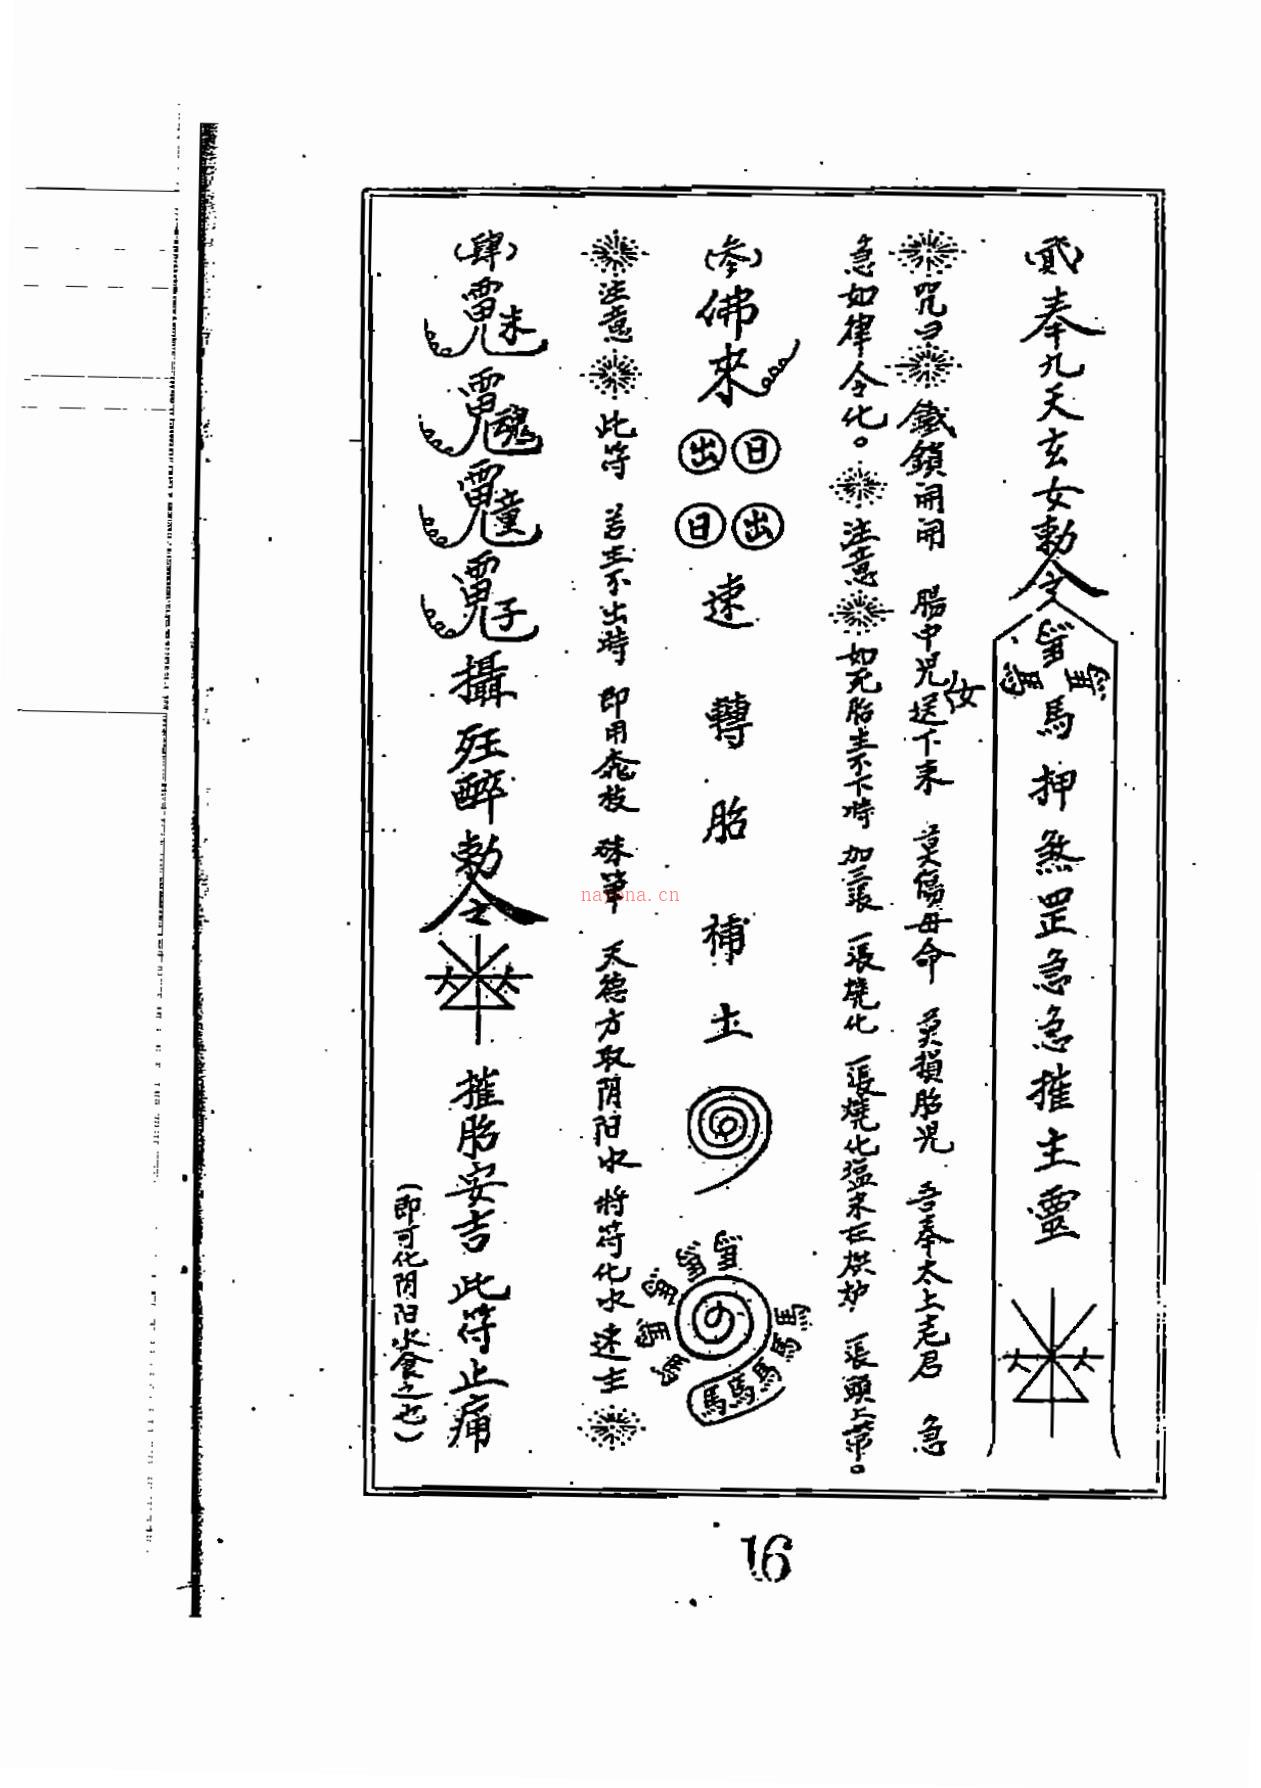 (貳)奉九天玄女勅令馬押煞罡急急摧主靈
咒曰 鐵鎖開開 腸中児女送下来 莫傷母命 莫損胎児 吾奉太上老君 急
急如律令化。 注意 如死胎生不下時 加三張 一張燒化 一張燒化塩末在烘炉 一張頭上帶。
(参)佛來 出日 日出 速轉胎補土 馬馬馬馬馬
注意 此符 若生不出時 即用桃枝 硃筆 天德方取阴阳水 将符化水速生
(肆) 攝 醉勅令 摧胎安吉 此符止痛
(即可化阴阳水食之也)
nayona.cn
16